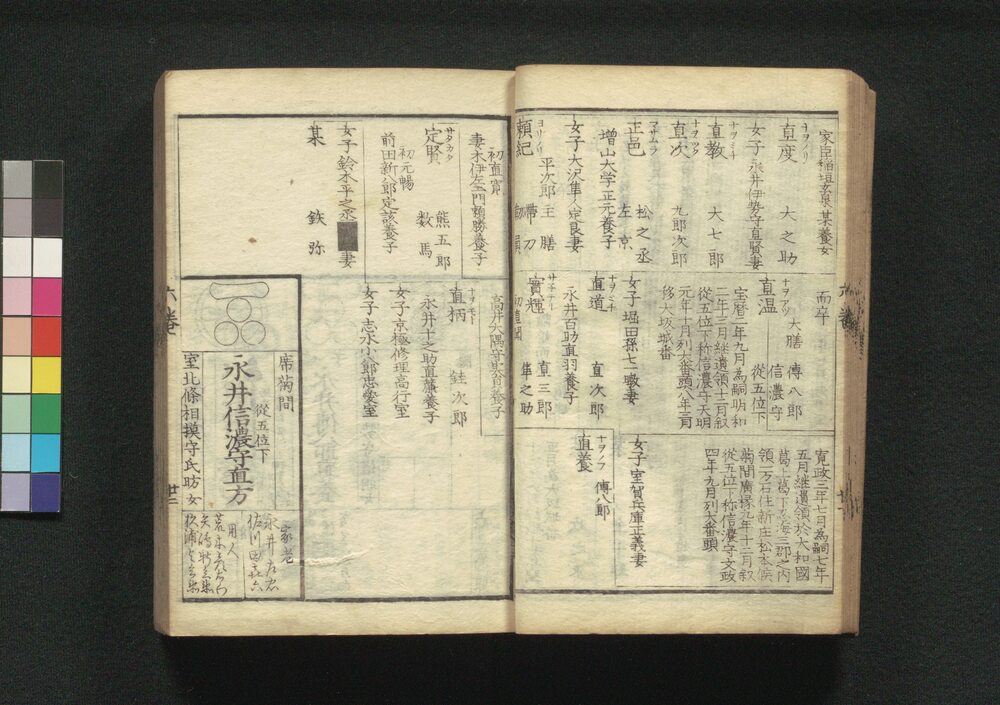 家臣稲垣玄泉某養女
ナヲノリ
直度 大之助
女子永井伊勢守直賢妻
ナヲミチ
直教 大七郎
ナヲツグ
直次 九郎次郎
マサムラ
正邑 松之丞
左京
増山大学正元養子
女子大沢隼人定良妻
ヨリノリ
頼紀 主膳
平次郎 帯刀
而卒
ナヲアツ
直温 大膳 傳八郎
信濃守
從五位下
宝暦二年九月為嗣明和
二年三月継遺領十二月叙
從五位下称信濃守天明
元年十月列大番頭八年三月
修大坂城番
女子堀田孫七一敦妻
ナヲミチ
直道 直次郎
永井百助直羽養子
實輝 直三郎
隼之助
寛政三年七月為嗣七年
五月継遺領於大和國
葛上葛下忍海三郡之内
領一万石住新庄松本候
菊間廣縁九年十二月叙
從五位下称信濃守文政
四年九月列大番頭
女子室賀兵庫正義妻
ナヲノブ
直養 傳八郎
初直賓
妻木伊左ヱ門頼勝養子
サタカタ
定賢 熊五郎
初元暢 数馬
前田新八郎定該養子
女子鈴木平之丞 妻
某 鉄弥
高井大隅守某養子
直柄 銈次郎
永井十之助直簾養子
女子京極修理高行室
女子志水小八郎忠愛室
席菊間
從五位下
永井信濃守直方
室北條相摸守氏昉女
家老
永井左忠
佐川田喜六
用人
六巻
廿二